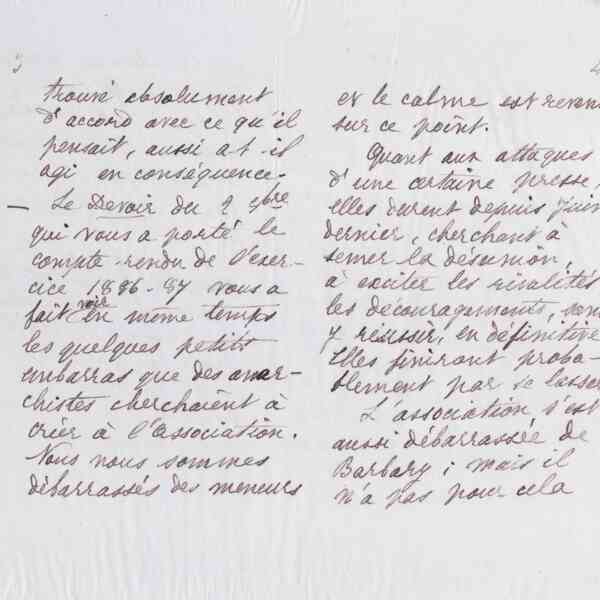 3
trouvé absolument
d'accord avec ce qu'il
pensait, aussi a t-il
agi en conséquence.
— Le Devoir du 2 9bre
qui vous a porté le
compte-rendu de l'exer-
cice 1886-87 vous a
fait voir en même temps
les quelques petits
embarras que des anar-
chistes cherchaient à
créer à l'association.
Nous nous sommes
débarrassés des meneurs
4
et le calme est revenu
sur ce point.
Quant aux attaques
d'une certaine presse,
elles durent depuis Juin
dernier, cherchant à
semer la désunion,
à exciter les rivalités
les découragements, sans
y réussir, en définitive
Elles finiront proba-
blement par se lasser
L'association s'est
aussi débarrassée de
Barbary ; mais il
n'a pas pour cela